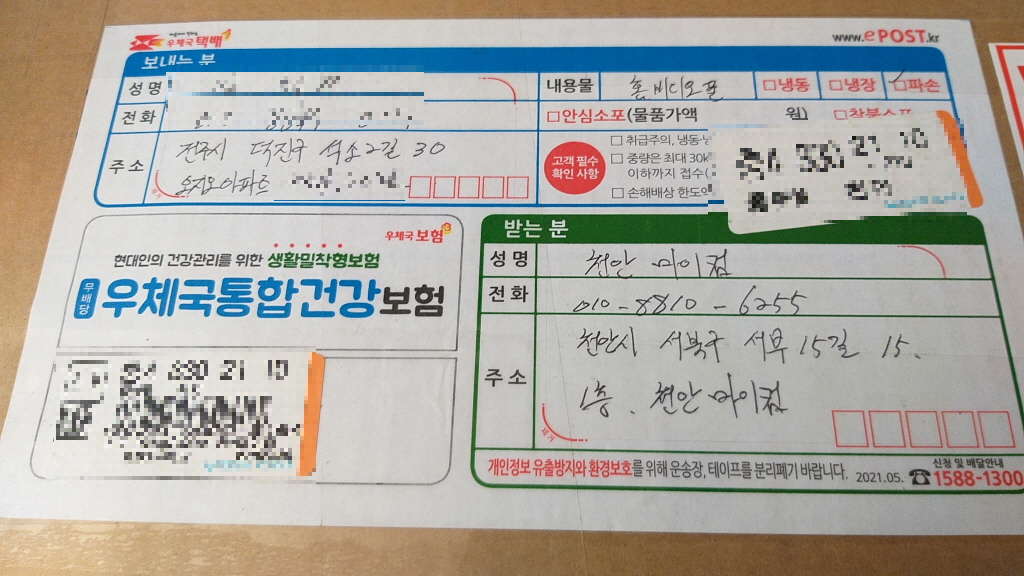 우체국 택배
www.ePOST.kr
보내는 분
성 명
전 화
주 소
전주시 덕진구 석소2길 30
아파트
내용물
홈비디오폰
□냉동 □냉장 □파손
□안심소포(물품가액 원) □착불소포
고객 필수
확인 사항
□ 취급주의, 냉동·냉
□ 중량은 최대 30k
이하까지 접수(
□ 손해배상 한도액
330 21 10
우체국 보험
현대인의 건강관리를 위한 생활밀착형보험
무배당 우체국통합건강보험
330 21 10
받는 분
성 명 천안 마이컴
전 화 010-8810-6255
주 소 천안시 서북구 서부15길 15.
1층. 천안마이컴
개인정보 유출방지와 환경보호를 위해 운송장, 테이프를 분리폐기 바랍니다. 2021.05.
신청 및 배달안내
☎1588-1300